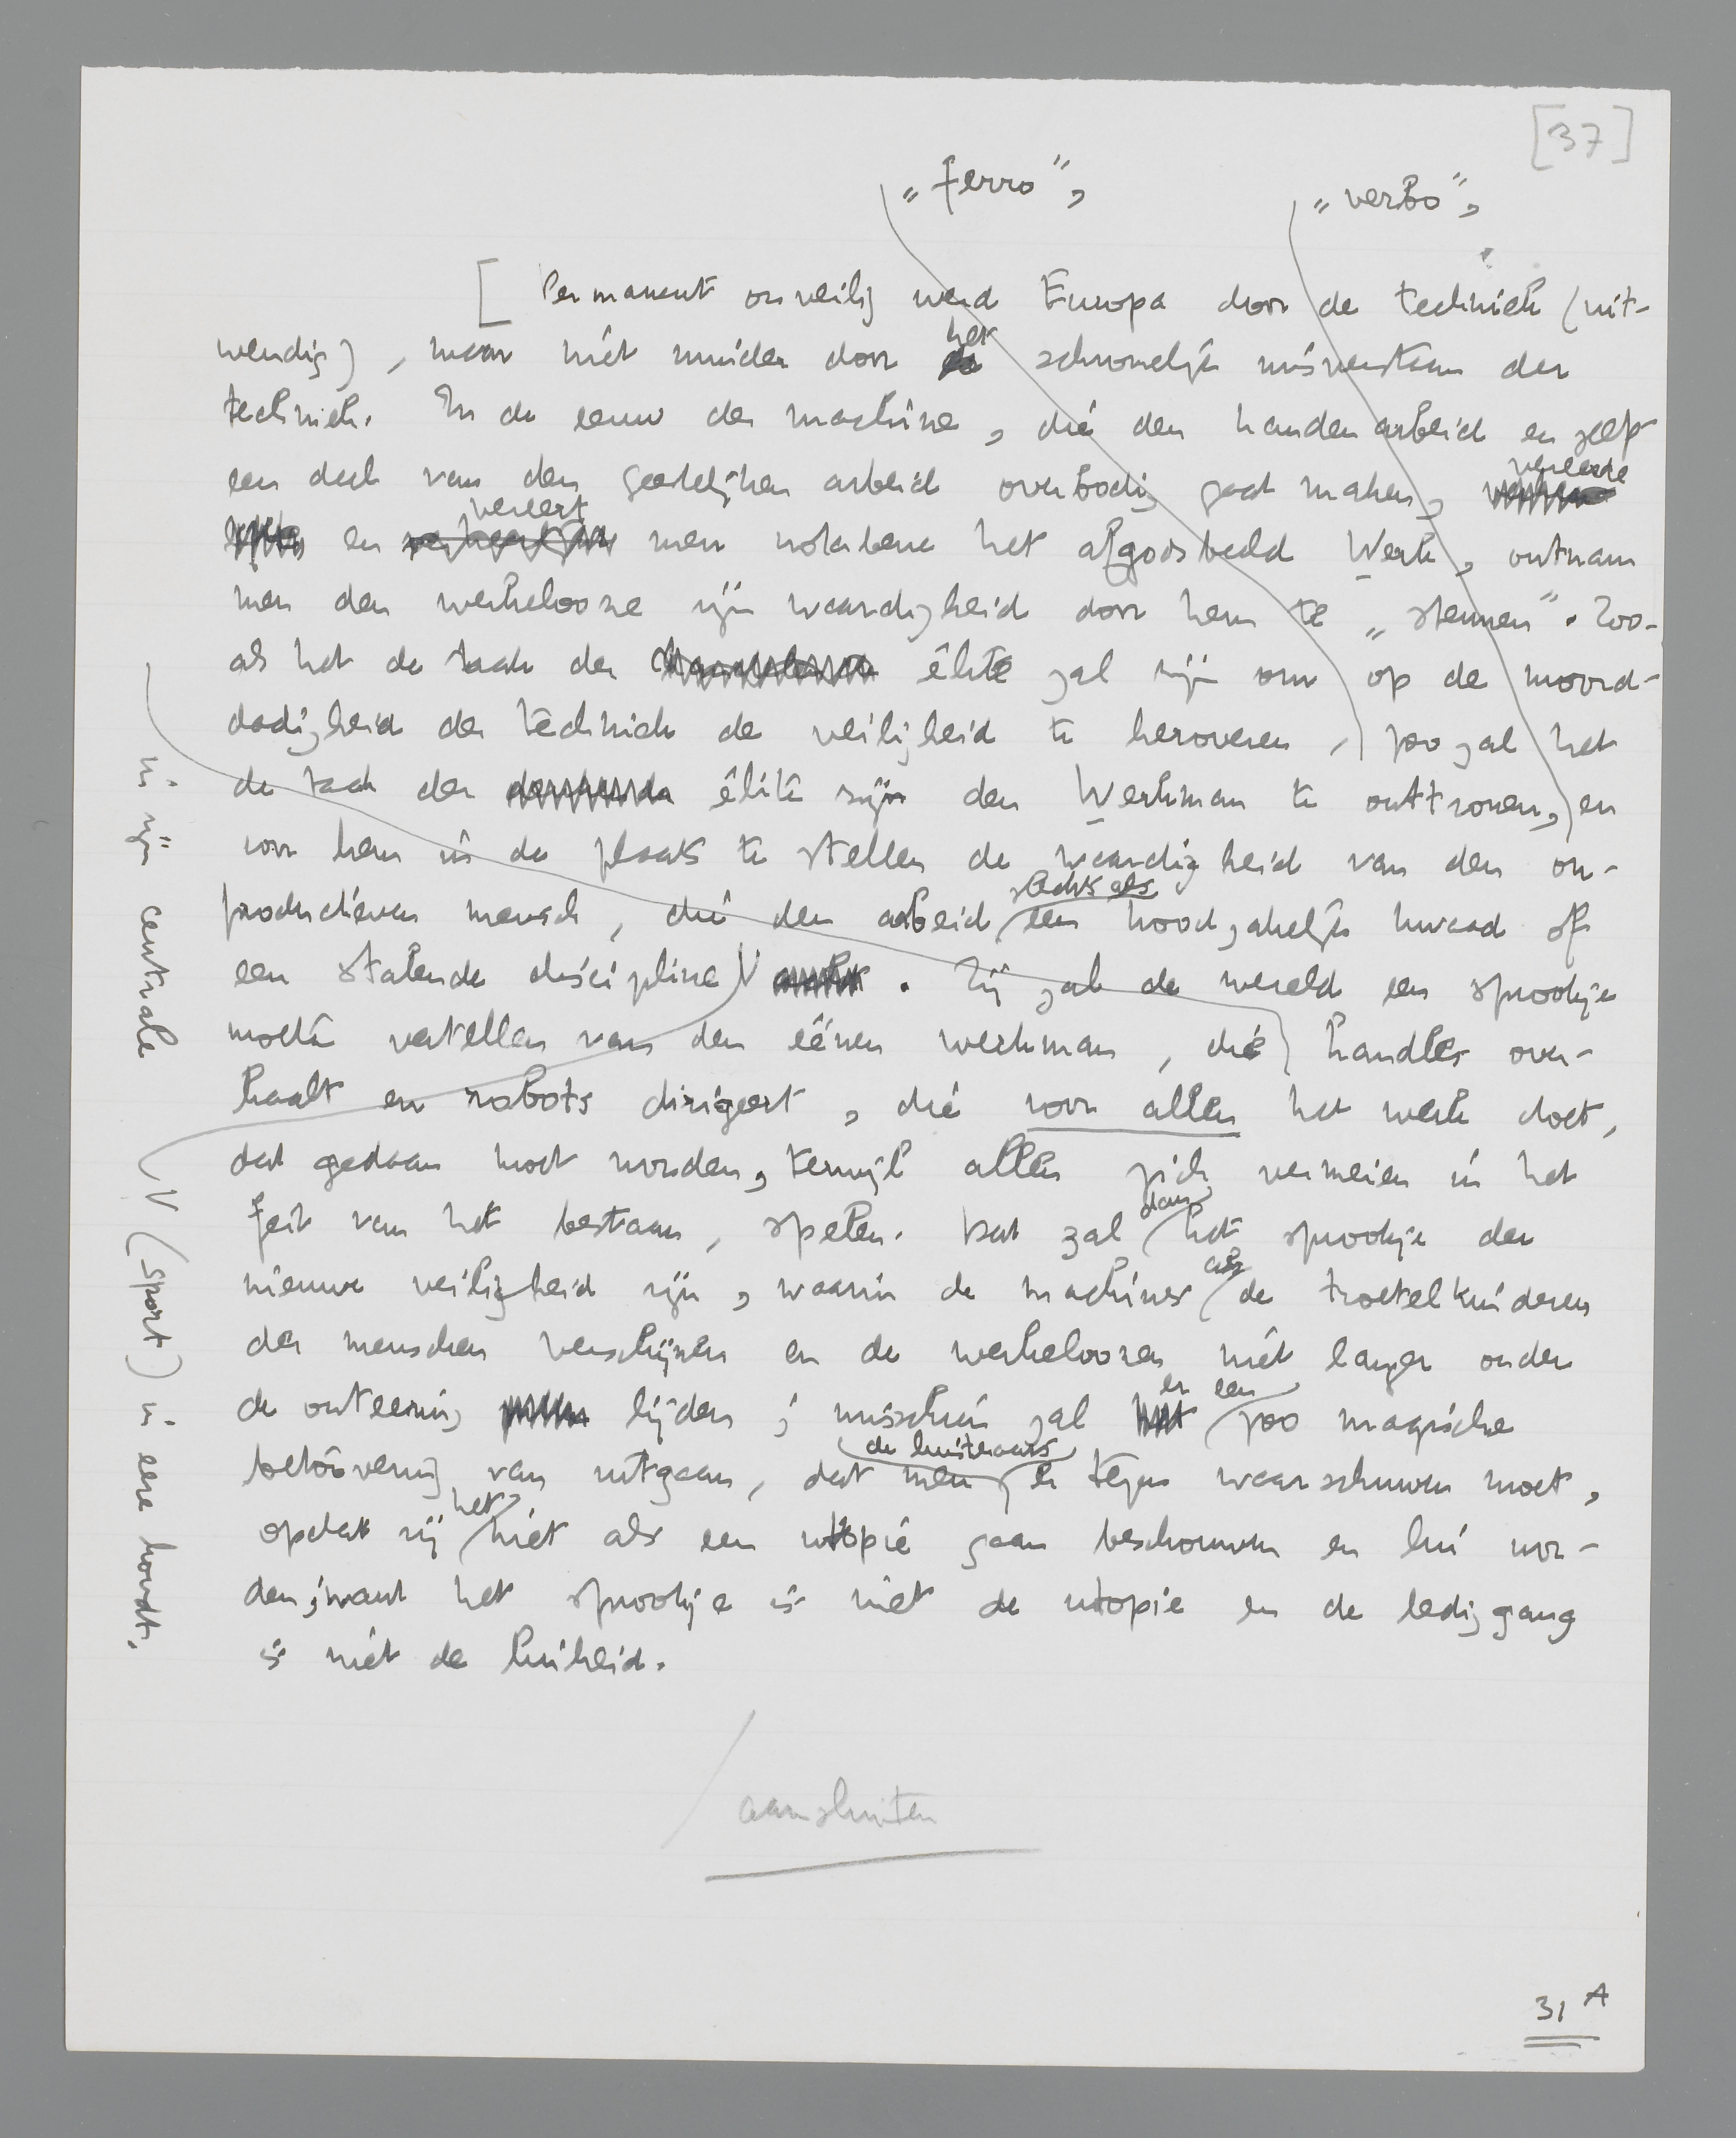 [37]
„ferro”,
„verbo”,
[ Permanent onveilig werd Europa door de techniek (uit-
wendig), maar niet minder door het schromelijk misverstaan der
techniek. In de eeuw der machine, die den handenarbeid en zelfs
een deel van den geestelijken arbeid overbodig gaat maken, vereerde
en vereert men notabene het afgodsbeeld Werk, ontnam
men den werkelooze zijn waardigheid door hem te „steunen”. Zoo-
als het de taak der élite zal zijn om op de moord-
dadigheid der techniek de veiligheid te heroveren, zoo zal het
de taak der élite zijn den Werkman te onttronen, en
voor hem in de plaats te stellen de waardigheid van den on-
slechts als
productieven mensch, die den arbeid een noodzakelijk kwaad of
een stalende discipline V . Zij zal de wereld een sprookje
moeten vertellen van den éénen werkman, die handles over-
haalt en robots dirigeert, die voor allen het werk doet,
dat gedaan moet worden, terwijl allen zich vermeien in het
feit van het bestaan, spelen. Dat zal dan het sprookje der
nieuwe veiligheid zijn, waarin de machines als de troetelkinderen
der menschen verschijnen en de werkeloozen niet langer onder
de onteering lijden; misschien zal er een zoo magische
de luisteraars
betoovering van uitgaan, dat men er tegen waarschuwen moet,
opdat zij het niet als een utopie gaan beschouwen en lui wor-
den; want het sprookje is niet de utopie en de lediggang
is niet de luiheid.
in zijn centrale
V (sport) in eere houdt.
aansluiten
31 A